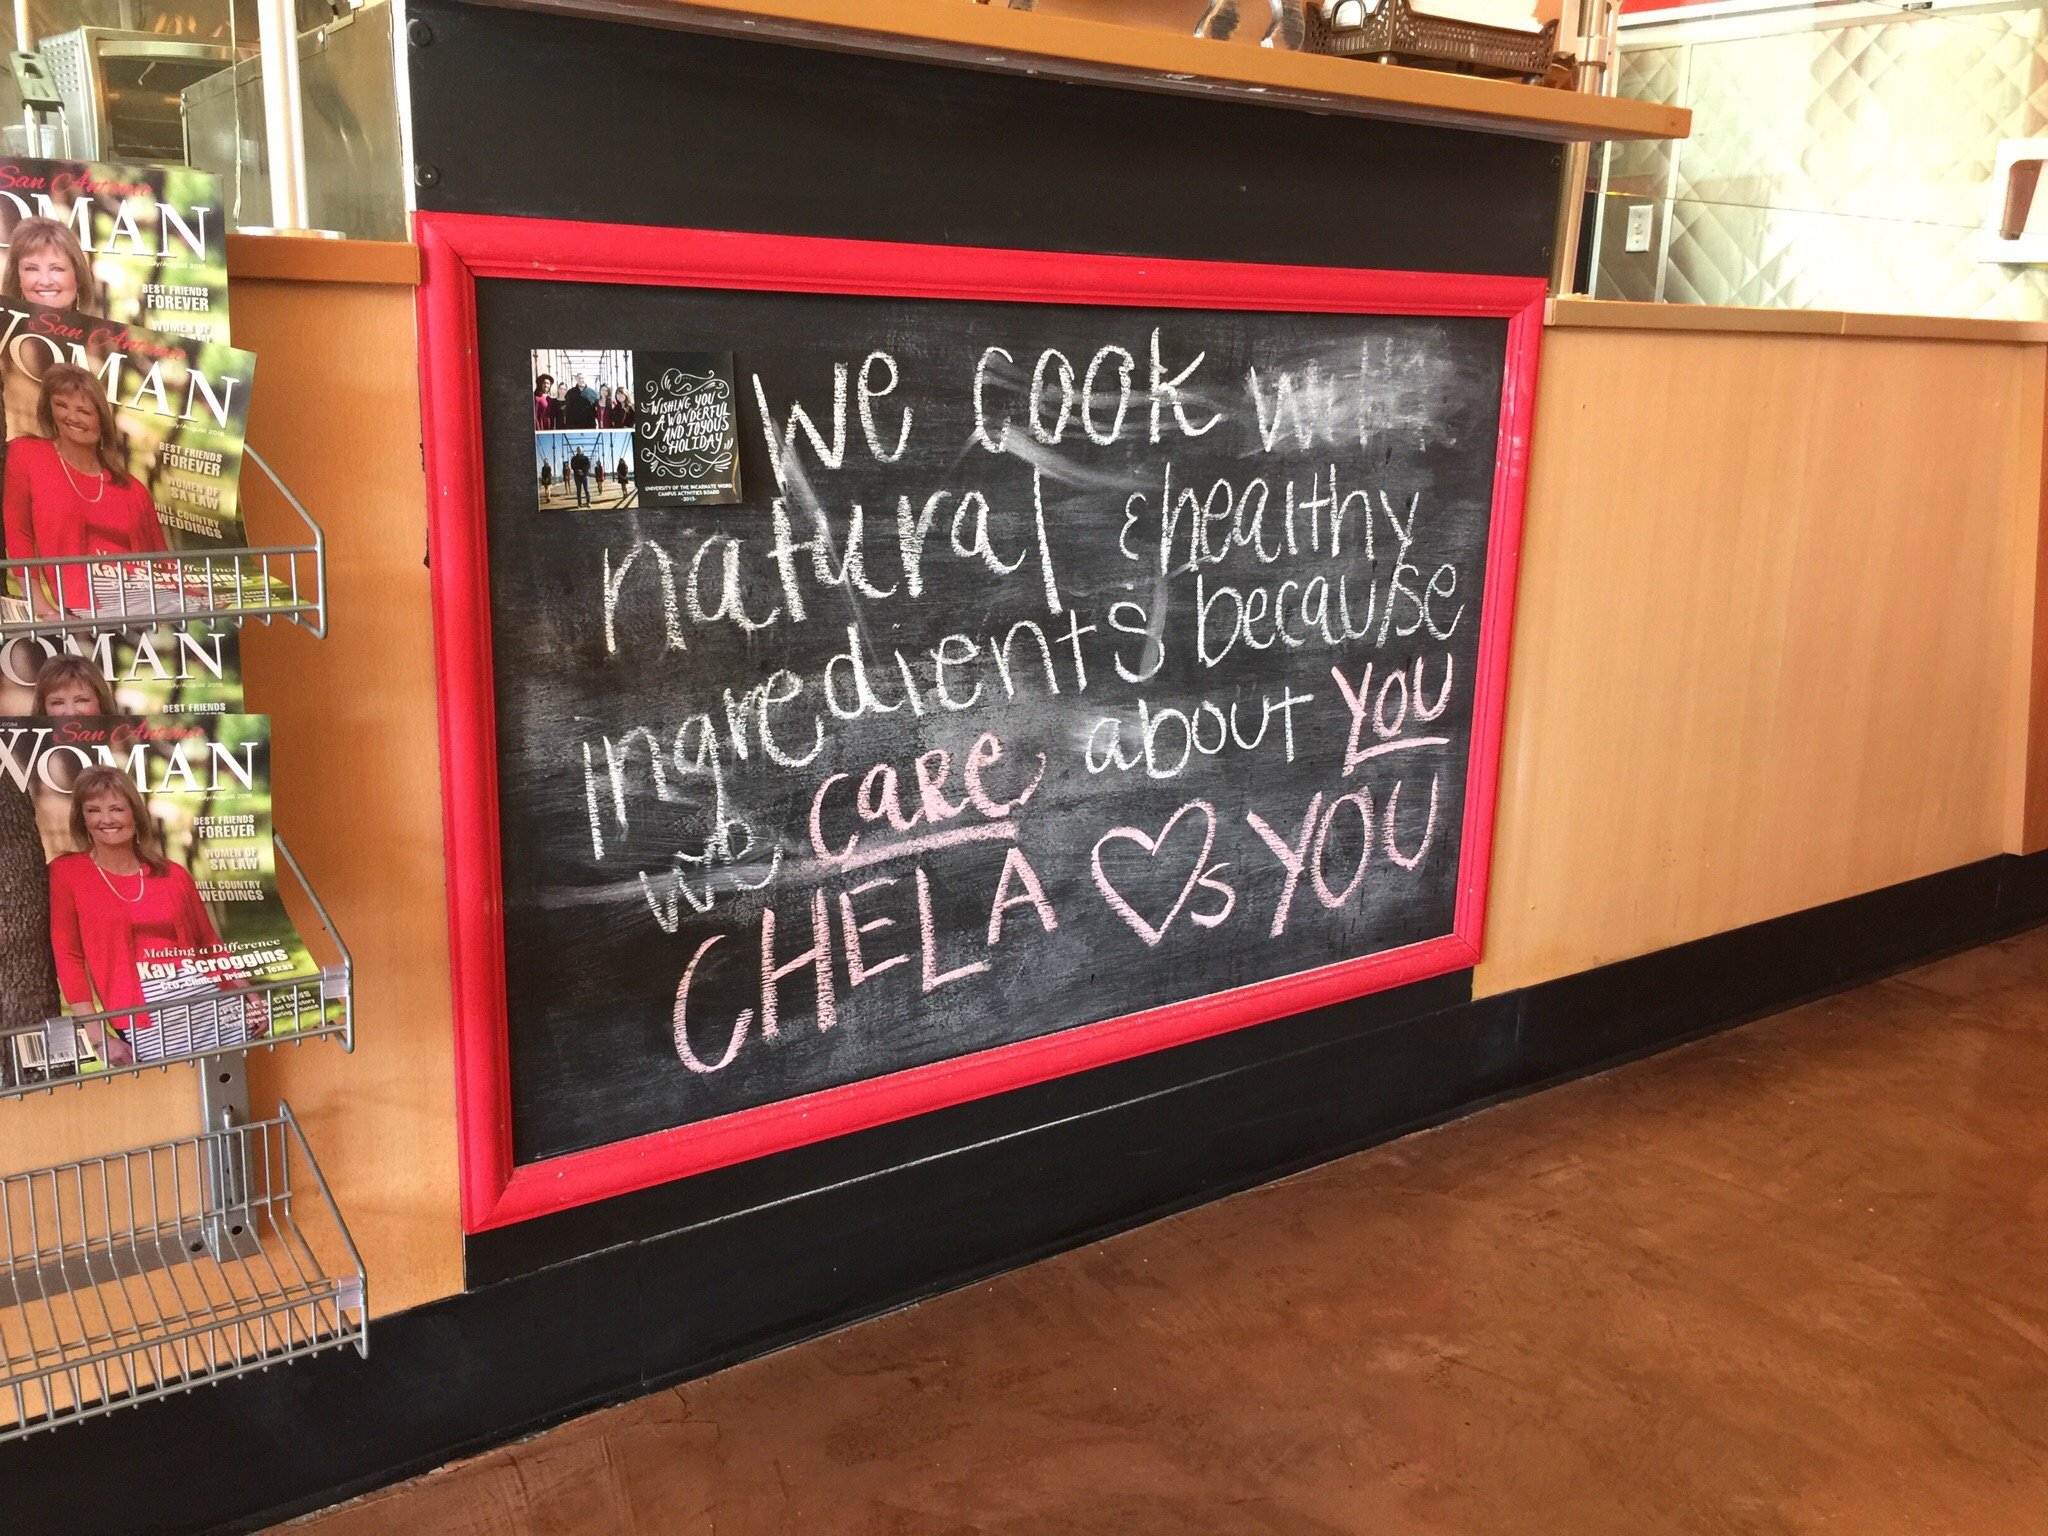 We cook with
natural & healthy
ingredients because
we care about YOU
CHELA ♡s YOU
WISHING YOU
A WONDERFUL
AND JOYOUS
HOLIDAY
UNIVERSITY OF THE INCARNATE WORD
CAMPUS ACTIVITIES BOARD
-2015-
San Antonio
WOMAN
July/August 2016
BEST FRIENDS
FOREVER
WOMEN OF
San Antonio
WOMAN
July/August 2016
BEST FRIENDS
FOREVER
WOMEN OF
SA LAW
HILL COUNTRY
WEDDINGS
Kay Scroggins
WOMAN
July/August 2016
BEST FRIENDS
San Antonio
WOMAN
July/August 2016
BEST FRIENDS
FOREVER
WOMEN OF
SA LAW
HILL COUNTRY
WEDDINGS
Making a Difference
Kay Scroggins
CEO, Clinical Trials of Texas